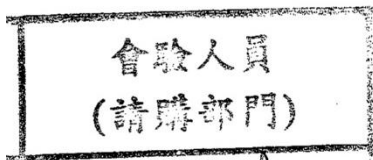 會驗人員
(請購部門)